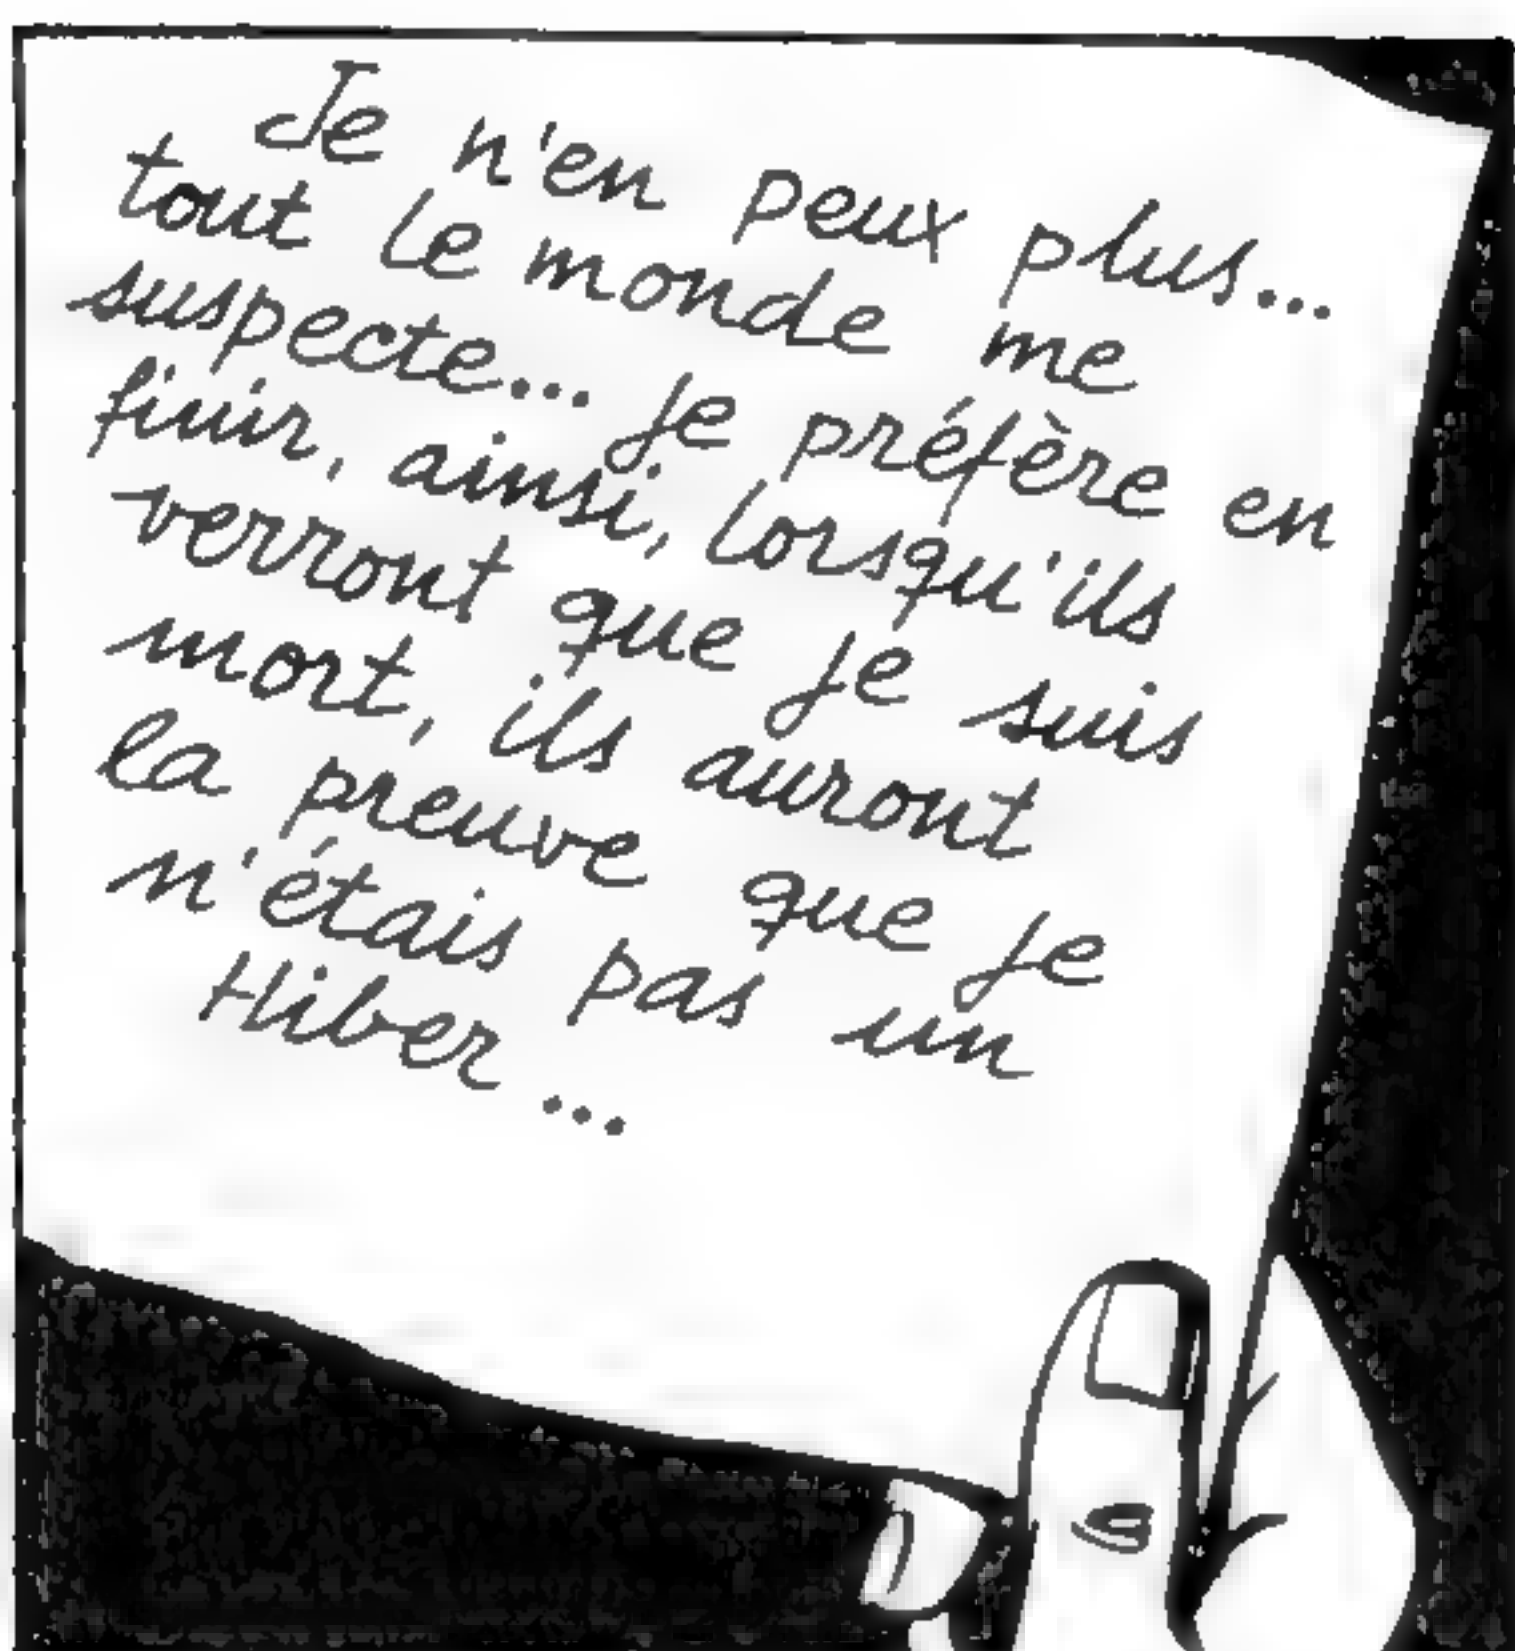 Je n'en peux plus...
tout le monde me
suspecte... je préfère en
finir, ainsi, lorsqu'ils
verront que je suis
mort, ils auront
la preuve que je
n'étais pas un
Hiber...